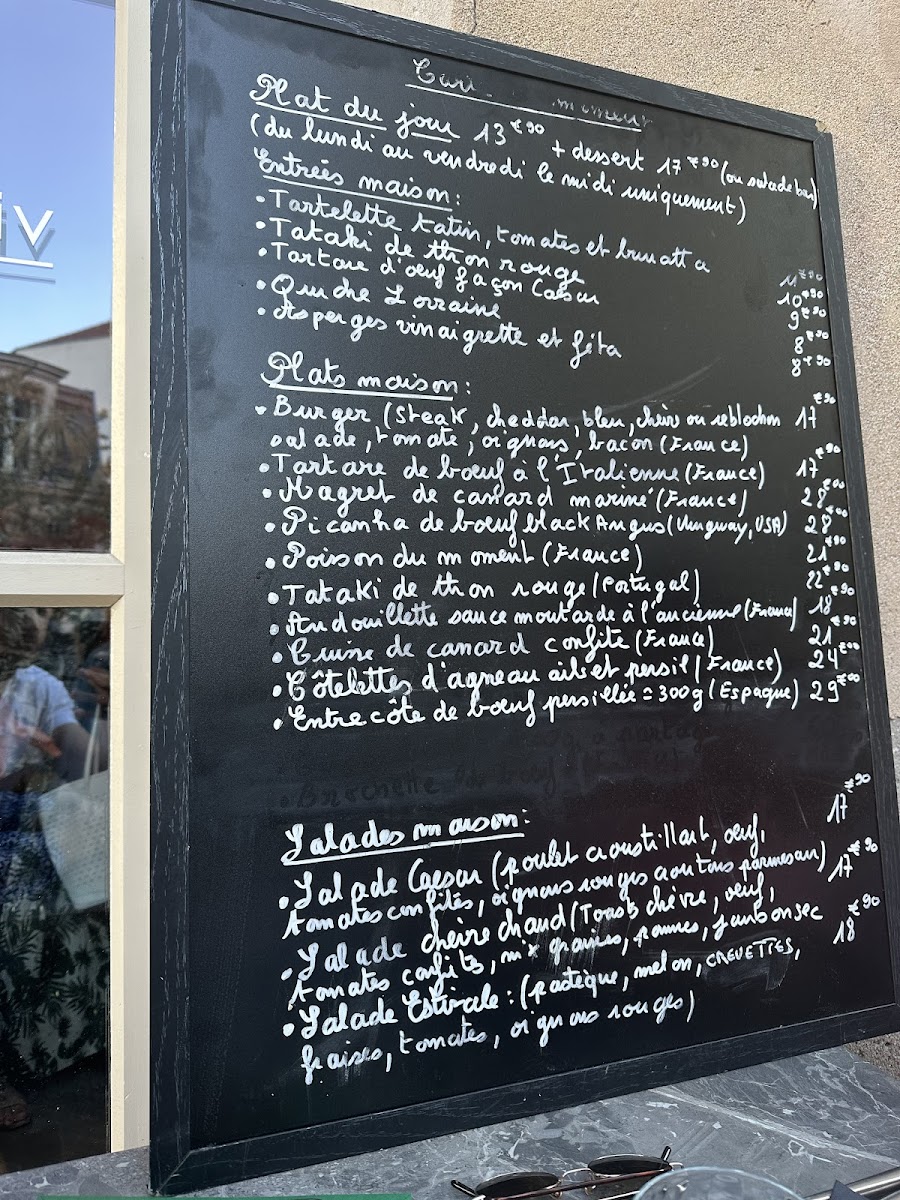 iv
Plat du jour 13€90 + dessert 17€90 (ou salade bar)
(du lundi au vendredi le midi uniquement)
Entrées maison:
• Tartelette tatin, tomates et burratta 11€90
• Tataki de thon rouge 10€90
• Tartare d'oeuf façon Caesar 9€90
• Quiche Lorraine 8€90
• Asperges vinaigrette et féta 8€90
Plats maison:
• Burger (Steak, cheddar, bleu, chèvre ou reblochon 17€90
salade, tomate, oignons, bacon (France)
• Tartare de bœuf à l'Italienne (France) 17€90
• Magret de canard mariné (France) 28€00
• Picanha de bœuf black Angus (Uruguay, USA) 28€00
• Poisson du moment (France) 21€90
• Tataki de thon rouge (Portugal) 22€90
• Andouillette sauce moutarde à l'ancienne (France) 18€90
• Cuisse de canard confite (France) 21€90
• Côtelettes d'agneau ails et persil (France) 24€00
• Entrecôte de bœuf persillée = 300g (Espagne) 29€00
Salades maison:
• Salade Caesar (poulet croustillant, oeuf, 17€90
tomates confites, oignons rouges croutons parmesan)
• Salade chèvre chaud (Toasts chèvre, oeuf, 17€90
tomates confites, mix graines, pommes, jambon sec
• Salade Estivale: (pastèque, melon, CREVETTES, 18€90
fraises, tomates, oignons rouges)